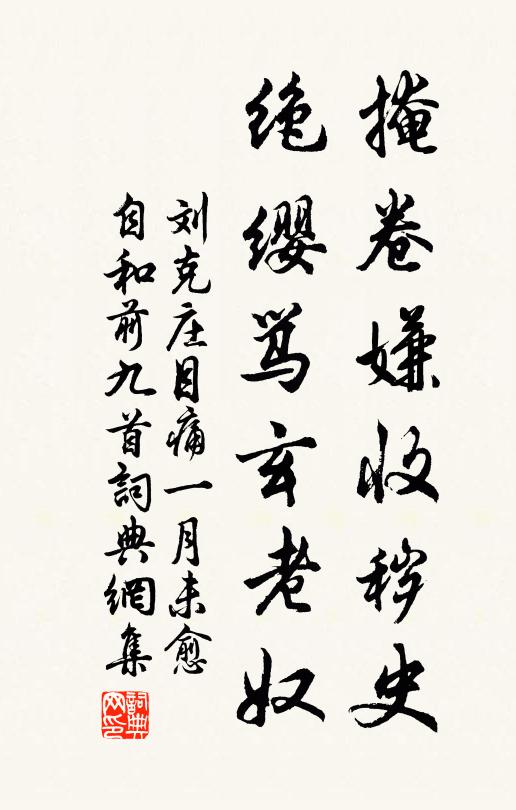 掩卷嫌收秽史
绝缨骂玄老奴
刘克庄目痛一月未愈
自和前九首詞典網集
詞典网印